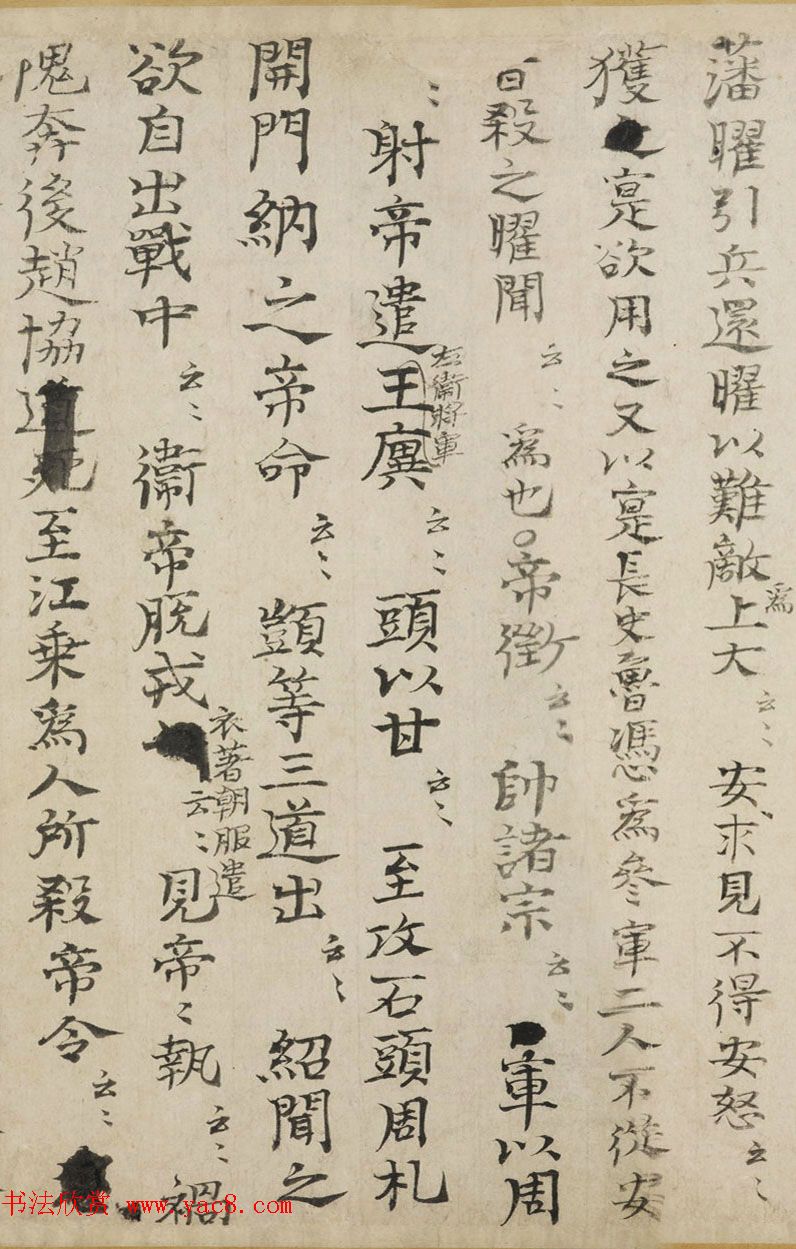 藩曜引兵還曜以難敵爲上大云〻安求見不得安怒云〻
獲寔欲用之又以寔長史魯憑爲參軍二人不從安
皆殺之曜聞云〻爲也帝徵云〻帥諸宗云〻軍以周
〻射帝遣左衛將軍王廙云〻頭以甘云〻至攻石頭周札
開門納之帝命云〻顗等三道出云〻紹聞之
欲自出戰中云〻衛帝脫戎衣著朝服遣云〻見帝〻執云〻禍
隗奔後趙協至江乗爲人所殺帝令云〻
书法欣赏 www.yac8.com